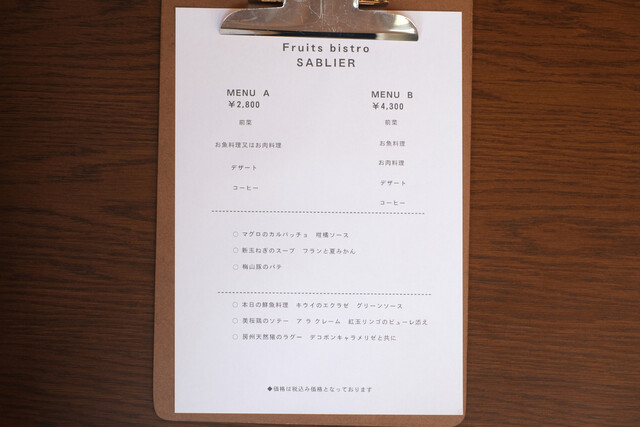 Fruits bistro
SABLIER
MENU A
¥2,800
前菜
お魚料理又はお肉料理
デザート
コーヒー
MENU B
¥4,300
前菜
お魚料理
お肉料理
デザート
コーヒー
○ マグロのカルパッチョ 柑橘ソース
○ 新玉ねぎのスープ フランと夏みかん
○ 梅山豚のパテ
○ 本日の鮮魚料理 キウイのエクラゼ グリーンソース
○ 美桜鶏のソテー ア ラ クレーム 紅玉リンゴのピューレ添え
○ 房州天然猪のラグー デコポンキャラメリゼと共に
◆価格は税込み価格となっております